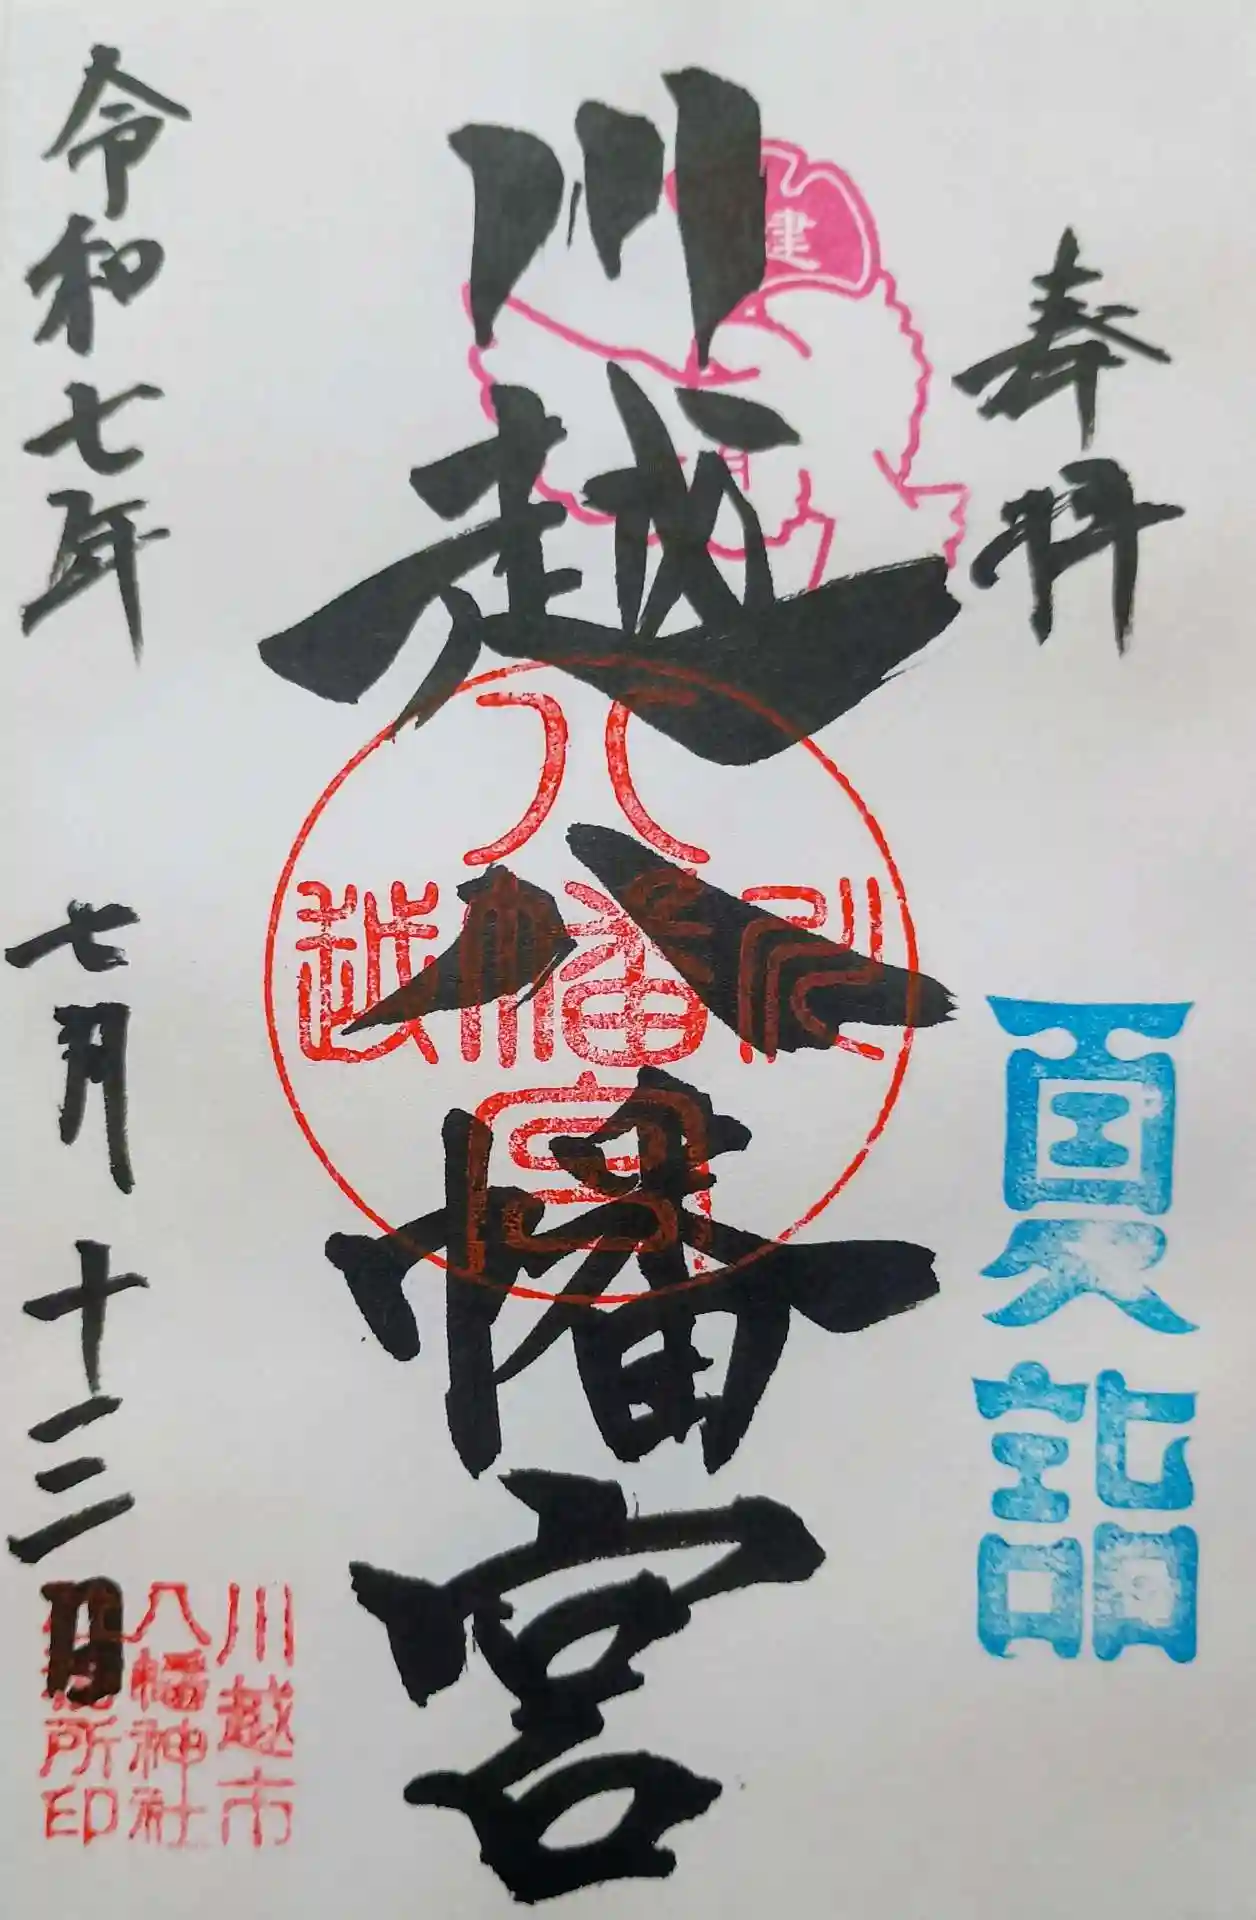 奉拝
夏詣
建
川越八幡宮
八
川幡越
宮
令和七年
七月十二日
川越市
八幡神社
所印